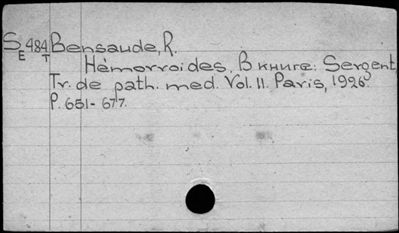 S 484 Bensaude, R.
E T
Hémorroides. В книге: Sergent
Tr. de path. med. Vol. 11. Paris, 1926.
P. 651-677.